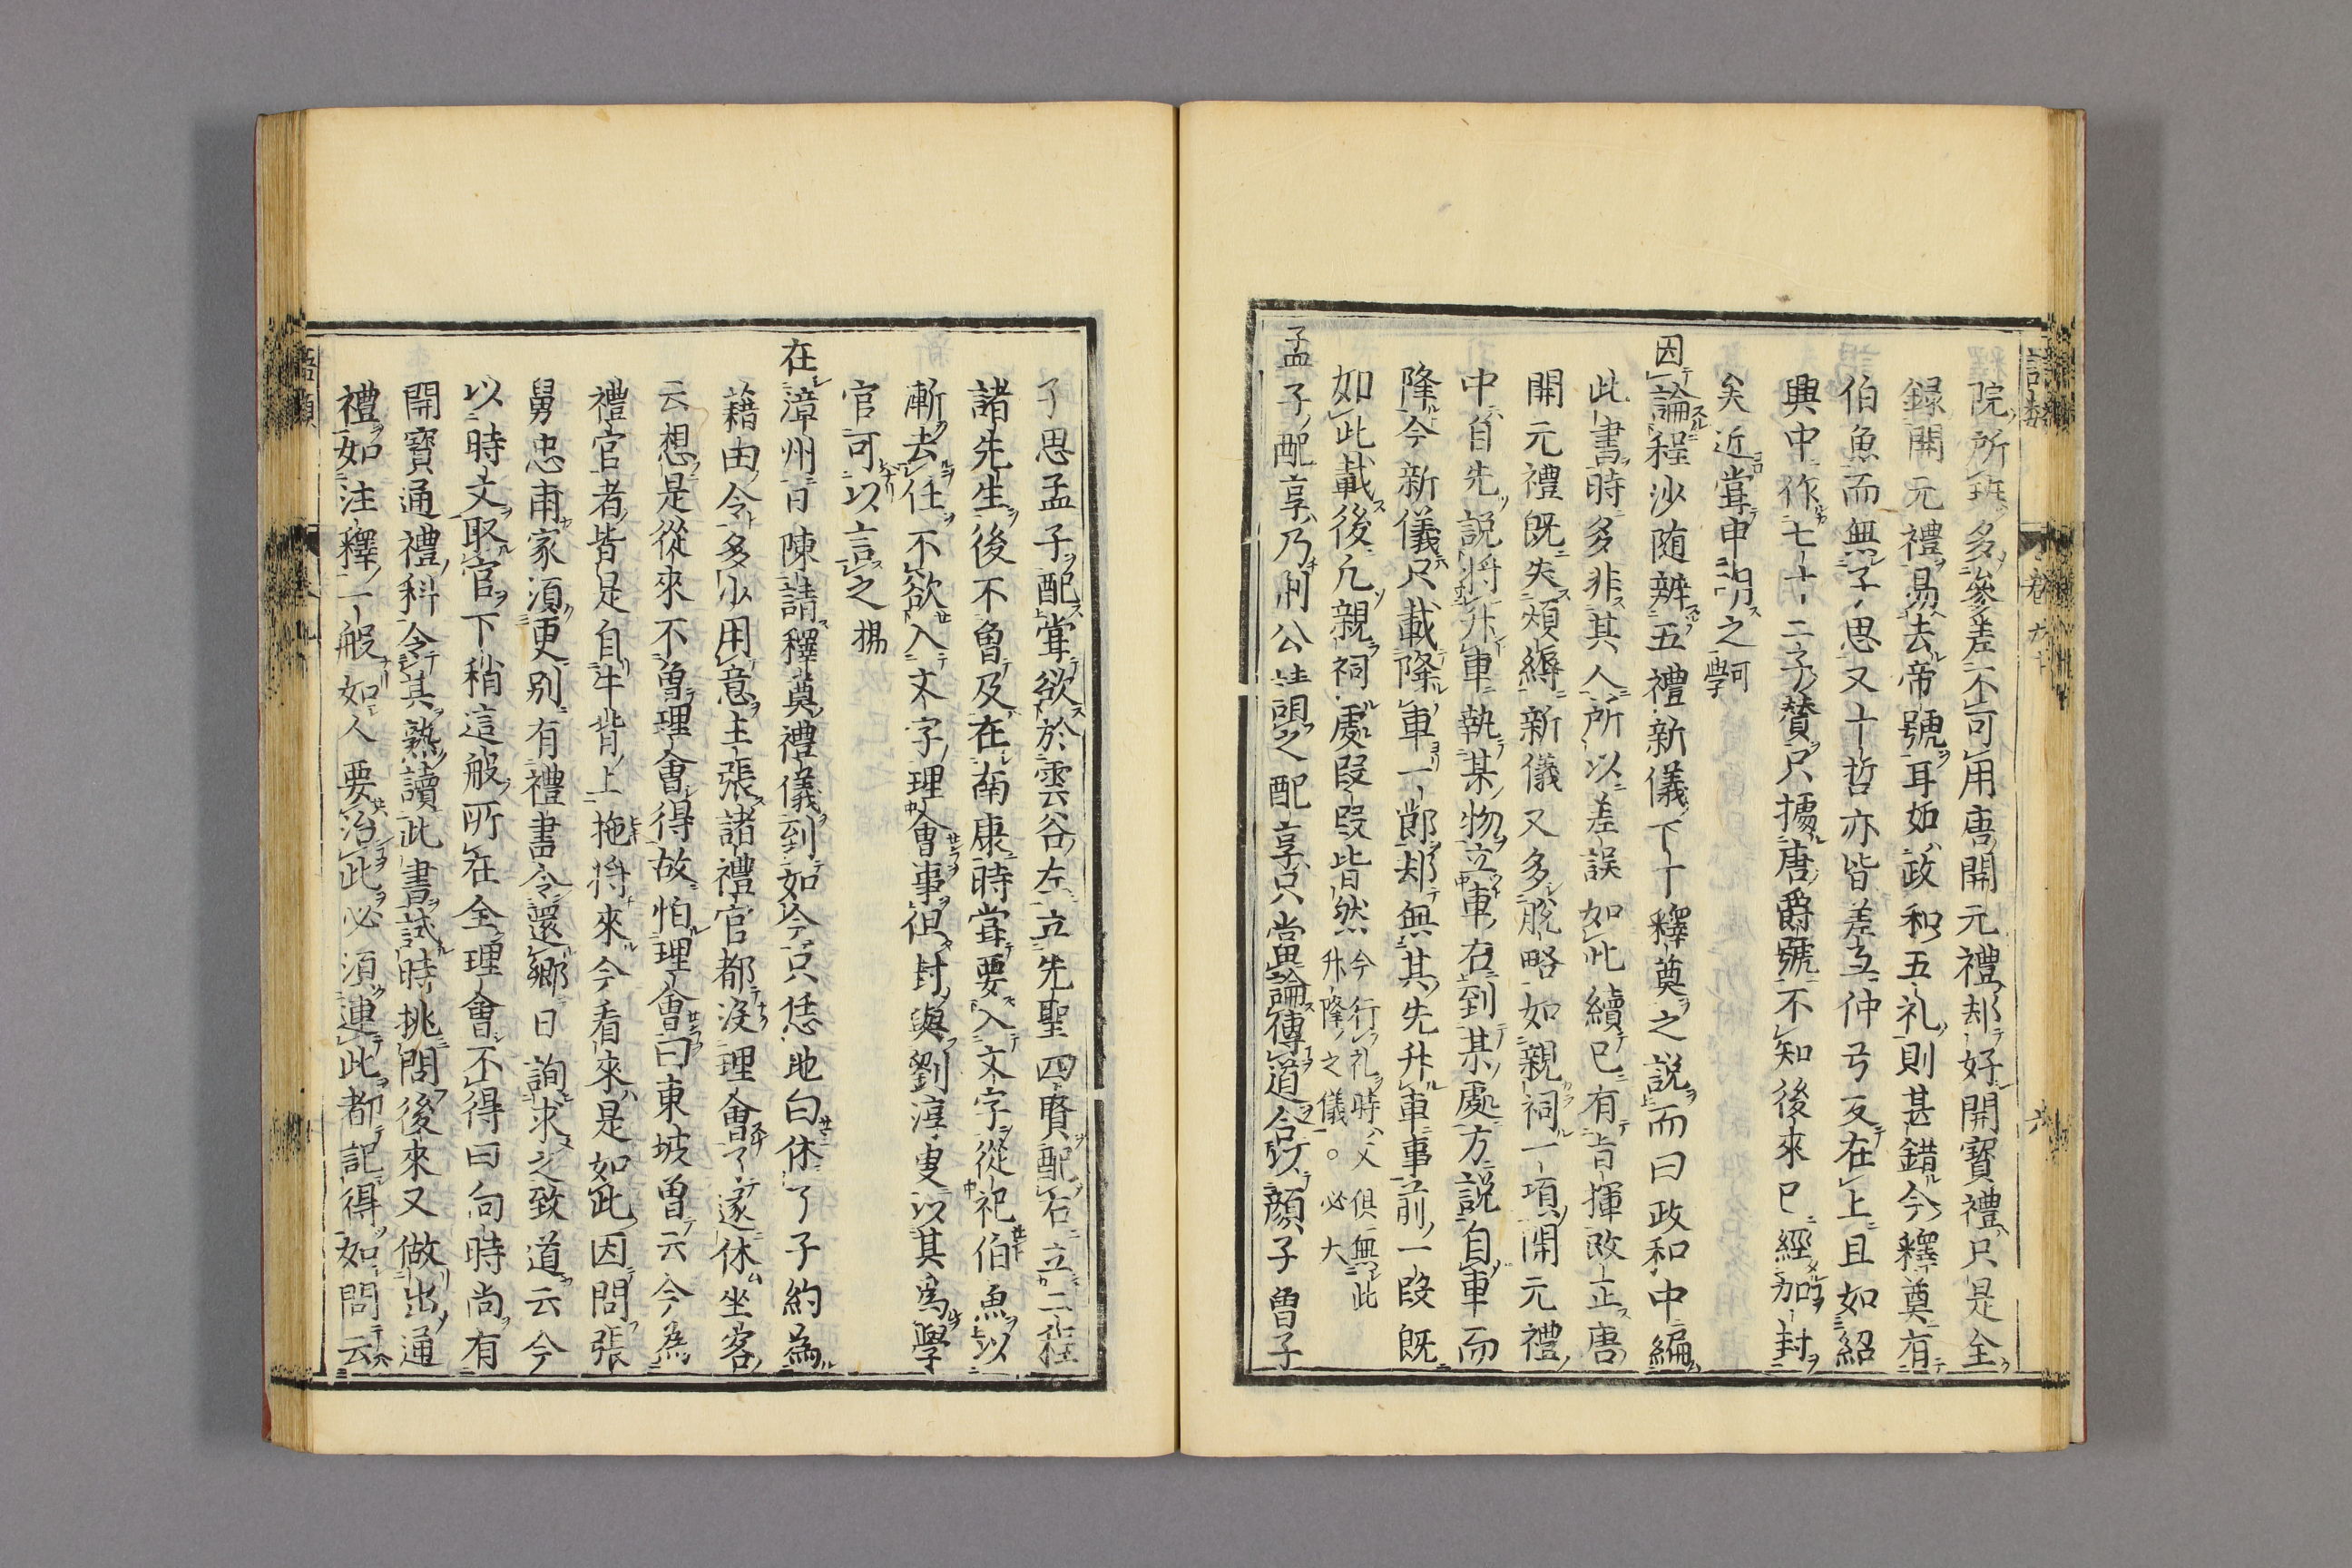 院所班多參差不可用唐開元禮却好開寶禮只是全
録開元禮易去帝號耳如政和五礼則甚錯今釋奠有
伯魚而無子思又十哲亦皆差互仲弓反在上且如紹
興中作七十二子賛只據唐爵號不知後來已經加封
矣近嘗申明之㽦學
因論程沙随辨五禮新儀下丁釋奠之説而曰政和中編
此書時多非其人所以差誤如此續已有㫖揮改正唐
開元禮既失煩縟新儀又多脱略如親祠一項開元禮
中自先説將升車執某物立車右到某處方説自車而
降今新儀只載降車一節却無其先升車事前一段既
如此載後凡親祠處段段皆然今行礼時又俱無此
升降之儀○必大
孟子配享乃荆公請之配享只當論傳道合以顔子曽子
子思孟子配嘗欲於雲谷左立先聖四賢配右立二程
諸先生後不曽及在南康時嘗要入文字從祀伯魚以
漸去任不欲入文字理會事但封與劉淳叟以其爲學
官可以言之㽦
在漳州日陳請釋奠禮儀到如今只恁地白休了子約為
藉田令多少用意主張諸禮官都没理會了遂休坐客
云想是從來不曽理會得故怕理會曰東坡曽云今為
禮官者皆是自牛背上拖将來今看來是如此因問張
舅忠甫家須更别有禮書令還郷日詢求之致道云今
以時文取官下稍這般所在全理會不得曰向時尚有
開寶通禮科令其熟讀此書試時挑問後來又做出通
禮如注釋一般如人要治此必須連此都記得如問云